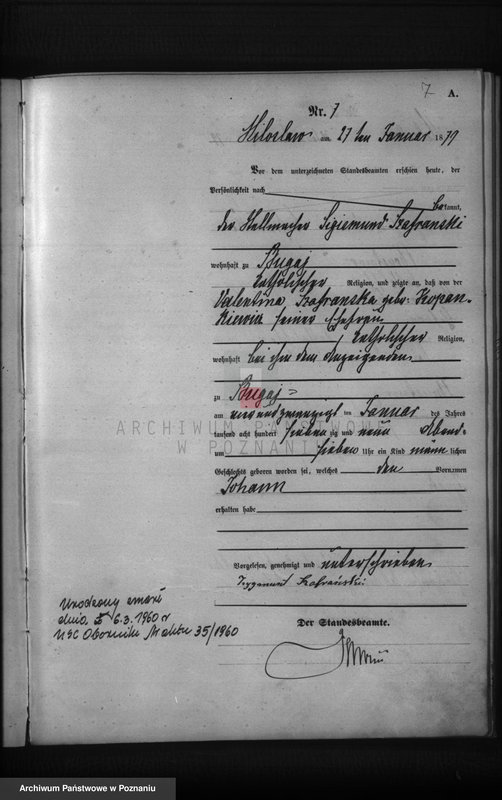 7 A.
Nr. 7
Miloslaw am 27 ten Januar 1879
Vor dem unterzeichneten Standesbeamten erschien heute, der
Persönlichkeit nach
bekannt,
der Stellmacher Sigismund Szafranski
wohnhaft zu Bugaj
katholischer Religion, und zeigte an, daß von der
Valentina Szafranska geb. Kopan-
kiewicz seiner Ehefrau
katholischer Religion,
wohnhaft bei ihm dem Anzeigenden
zu Bugaj
am ein und zwanzigsten Januar des Jahres
tausend acht hundert sieben zig und neun Abend-
um sieben Uhr ein Kind männ lichen
Geschlechts geboren worden sei, welches den Vornamen
Johann
erhalten habe
Vorgelesen, genehmigt und unterschrieben
Zygmunt Szafrański
Der Standesbeamte.
Urodzony zmarł
dnia 6.3.1960 r
USC Oborniki Nr aktu 35/1960
ARCHIWUM PAŃSTWOWE
W POZNANIU
Archiwum Państwowe w Poznaniu